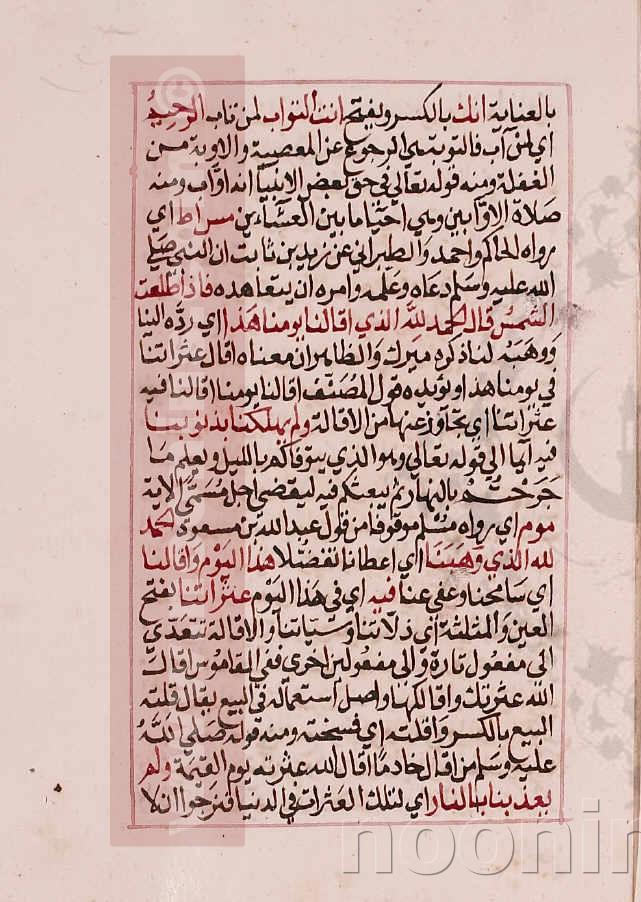 بالعناية انك بالكسر ويفتح انت التواب لمن تاب الرحيم
اي لمن آب فالتوبة هي الرجوع عن المعصية والاوبة من
الغفلة ومنه قوله تعالى في حق بعض الانبيا انه اوّاب ومنه
صلاة الاوّابين وهي احيا ما بين العشاءين مس اط اي
رواه الحاكم واحمد والطبراني عن زيد بن ثابت ان النبي صلى
الله عليه وسلم دعاه وعلمه وامره ان يتعاهده فاذا طلعت
الشمس قال الحمد لله الذي اقالنا يومنا هذا اي ردّه الينا
ووهبه لنا ذكره ميرك والظاهر ان معناه اقال عثراتنا
في يومنا هذا ويؤيده قول المصنّف اقالنا يومنا اقالنا فيه
عثراتنا اي تجاوز عنها من الاقالة ولم يهلكنا بذنوبنا
فيه ايما الى قوله تعالى وهو الذي يتوفاكم بالليل ويعلم ما
جرحتم بالنهار ثم يبعثكم فيه ليقضى اجل مسمّى الاية
موم اي رواه مسلم موقوفا من قول عبد الله بن مسعود الحمد
لله الذي وهبنا اي اعطانا تفضّلا هذا اليوم واقالنا
اي سامحنا وعفى عنا فيه اي في هذا اليوم عثراتنا بفتح
العين والمثلثة اي زلّاتنا وسيّاتنا والاقالة تتعدّي
الى مفعول تارة والى مفعولين اخرى ففي القاموس اقال
الله عثرتك واقالكها واصل استعماله في البيع يقال قلته
البيع بالكسر واقلته اي فسخته ومنه قوله صلى الله
عليه وسلم من اقال خادما اقال الله عثرته يوم القيمة ولم
يعذبنا بالنار اي لتلك العثرات في الدنيا فنرجوا ان لا
noonir